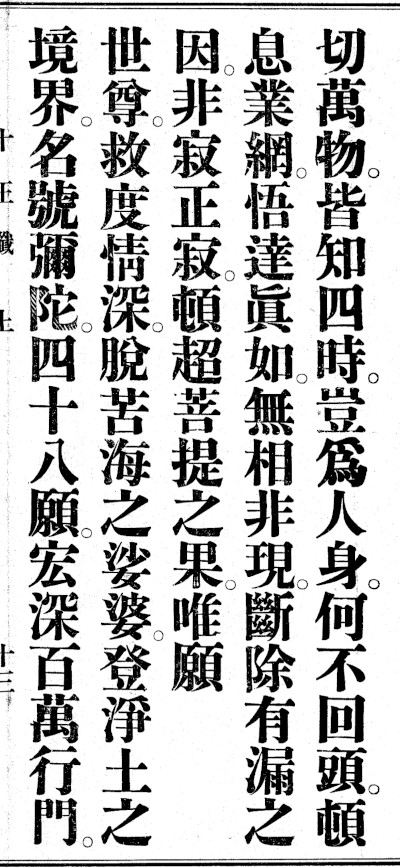 切萬物。皆知四時。豈爲人身。何不回頭。頓
息業網。悟達眞如。無相非現。斷除有漏之
因。非寂正寂。頓超菩提之果。唯願
世尊。救度情深。脫苦海之娑婆。登淨土之
境界。名號彌陀。四十八願。宏深百萬行門。
十王懺 上 十三